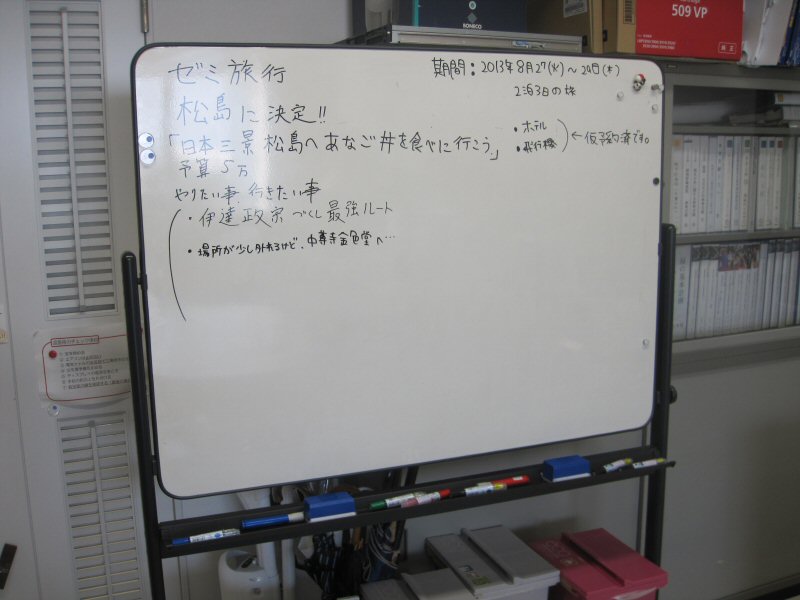 BONECO
509 VP
純正
ゼミ旅行
期間：2013年8月27(火)～29日(木)
2泊3日の旅
松島に決定!!
「日本三景 松島へ あなご丼を食べに行こう」
・ホテル
・飛行機
←仮予約済です。
予算 5万
やりたい事 行きたい事
・伊達政宗づくし最強ルート
・場所が少し外れるけど、中尊寺金色堂へ…